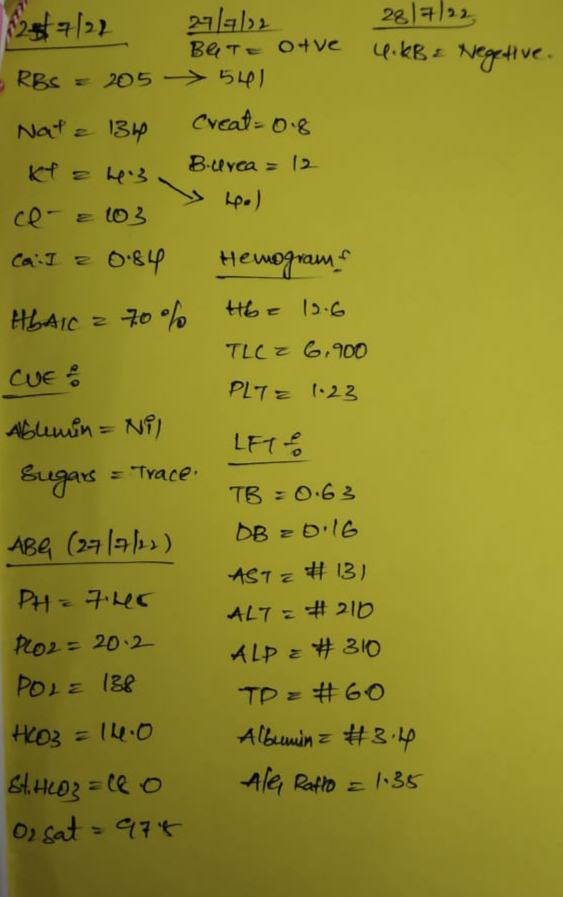 27/7/22
28/7/22
B&T = O+ve
U.KB = Negetive.
RBS = 205 → 541
Na+ = 134
Creat = 0.8
K+ = 4.3
B.urea = 12
4.1
Cl- = 103
Ca.I = 0.84
Hemogram:
HbA1C = 7.0 %
Hb = 12.6
TLC = 6,900
CUE :
PLT = 1.23
Ablumin = Nil
LFT :
Sugars = Trace.
TB = 0.63
DB = 0.16
ABG (27/7/22)
AST = # 131
PH = 7.45
ALT = # 210
PCO2 = 20.2
ALP = # 310
PO2 = 138
TP = # 6.0
HCO3 = 14.0
Albumin = # 3.4
St.HCO3 =
A/G Ratio = 1.35
O2 Sat =